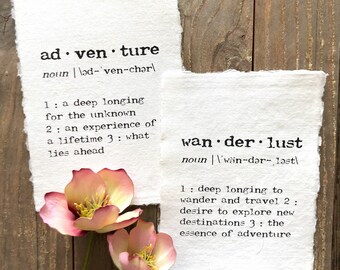 ad·ven·ture
noun | \əd-ˈven-chər\
1 : a deep longing
for the unknown
2 : an experience of
a lifetime 3 : what
lies ahead
wan·der·lust
noun | \ˈwän-dər-ˌləst\
1 : deep longing to
wander and travel 2 :
desire to explore new
destinations 3 : the
essence of adventure